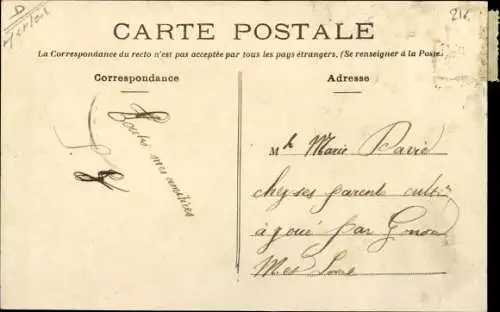 D
216.
CARTE POSTALE
La Correspondance du recto n'est pas acceptée par tous les pays étrangers. (Se renseigner à la Poste.)
Correspondance
Adresse
Toutes mes amitiées
Mlle Marie David
chez ses parents cultiv
à par